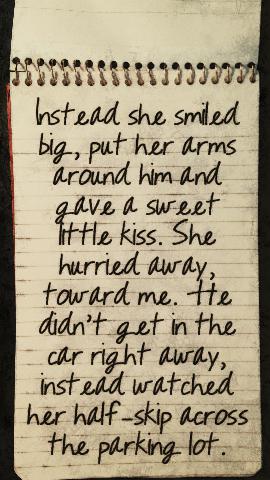 Instead she smiled
big, put her arms
around him and
gave a sweet
little kiss. She
hurried away,
toward me. He
didn't get in the
car right away,
instead watched
her half-skip across
the parking lot.